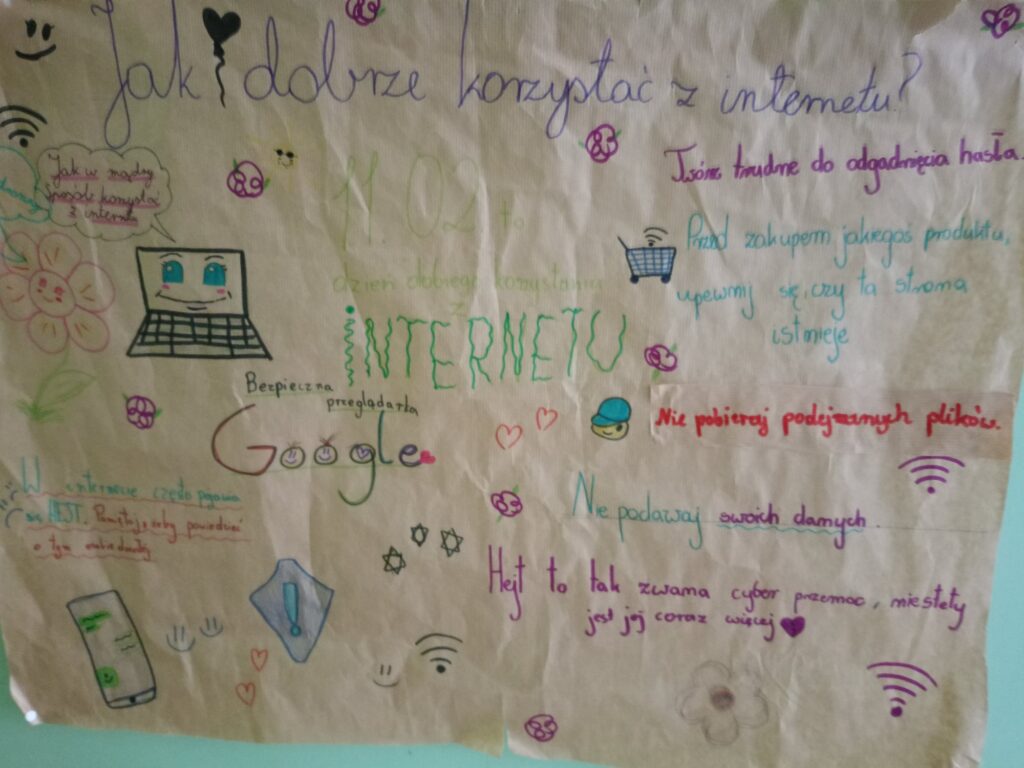 Jak dobrze korzystać z internetu?
Jak w mądry
sposób korzystać
z internetu
Twórz trudne do odgadnięcia hasła.
11.02 to
dzień dobrego korzystania
z
INTERNETU
Przed zakupem jakiegoś produktu,
upewnij się, czy ta strona
istnieje
Bezpieczna
przeglądarka
Google
Nie pobieraj podejrzanych plików.
W internecie często pojawia
się HEJT. Pamiętaj, żeby powiedzieć
o tym
Nie podawaj swoich danych.
Hejt to tak zwana cyber przemoc, niestety
jest jej coraz więcej